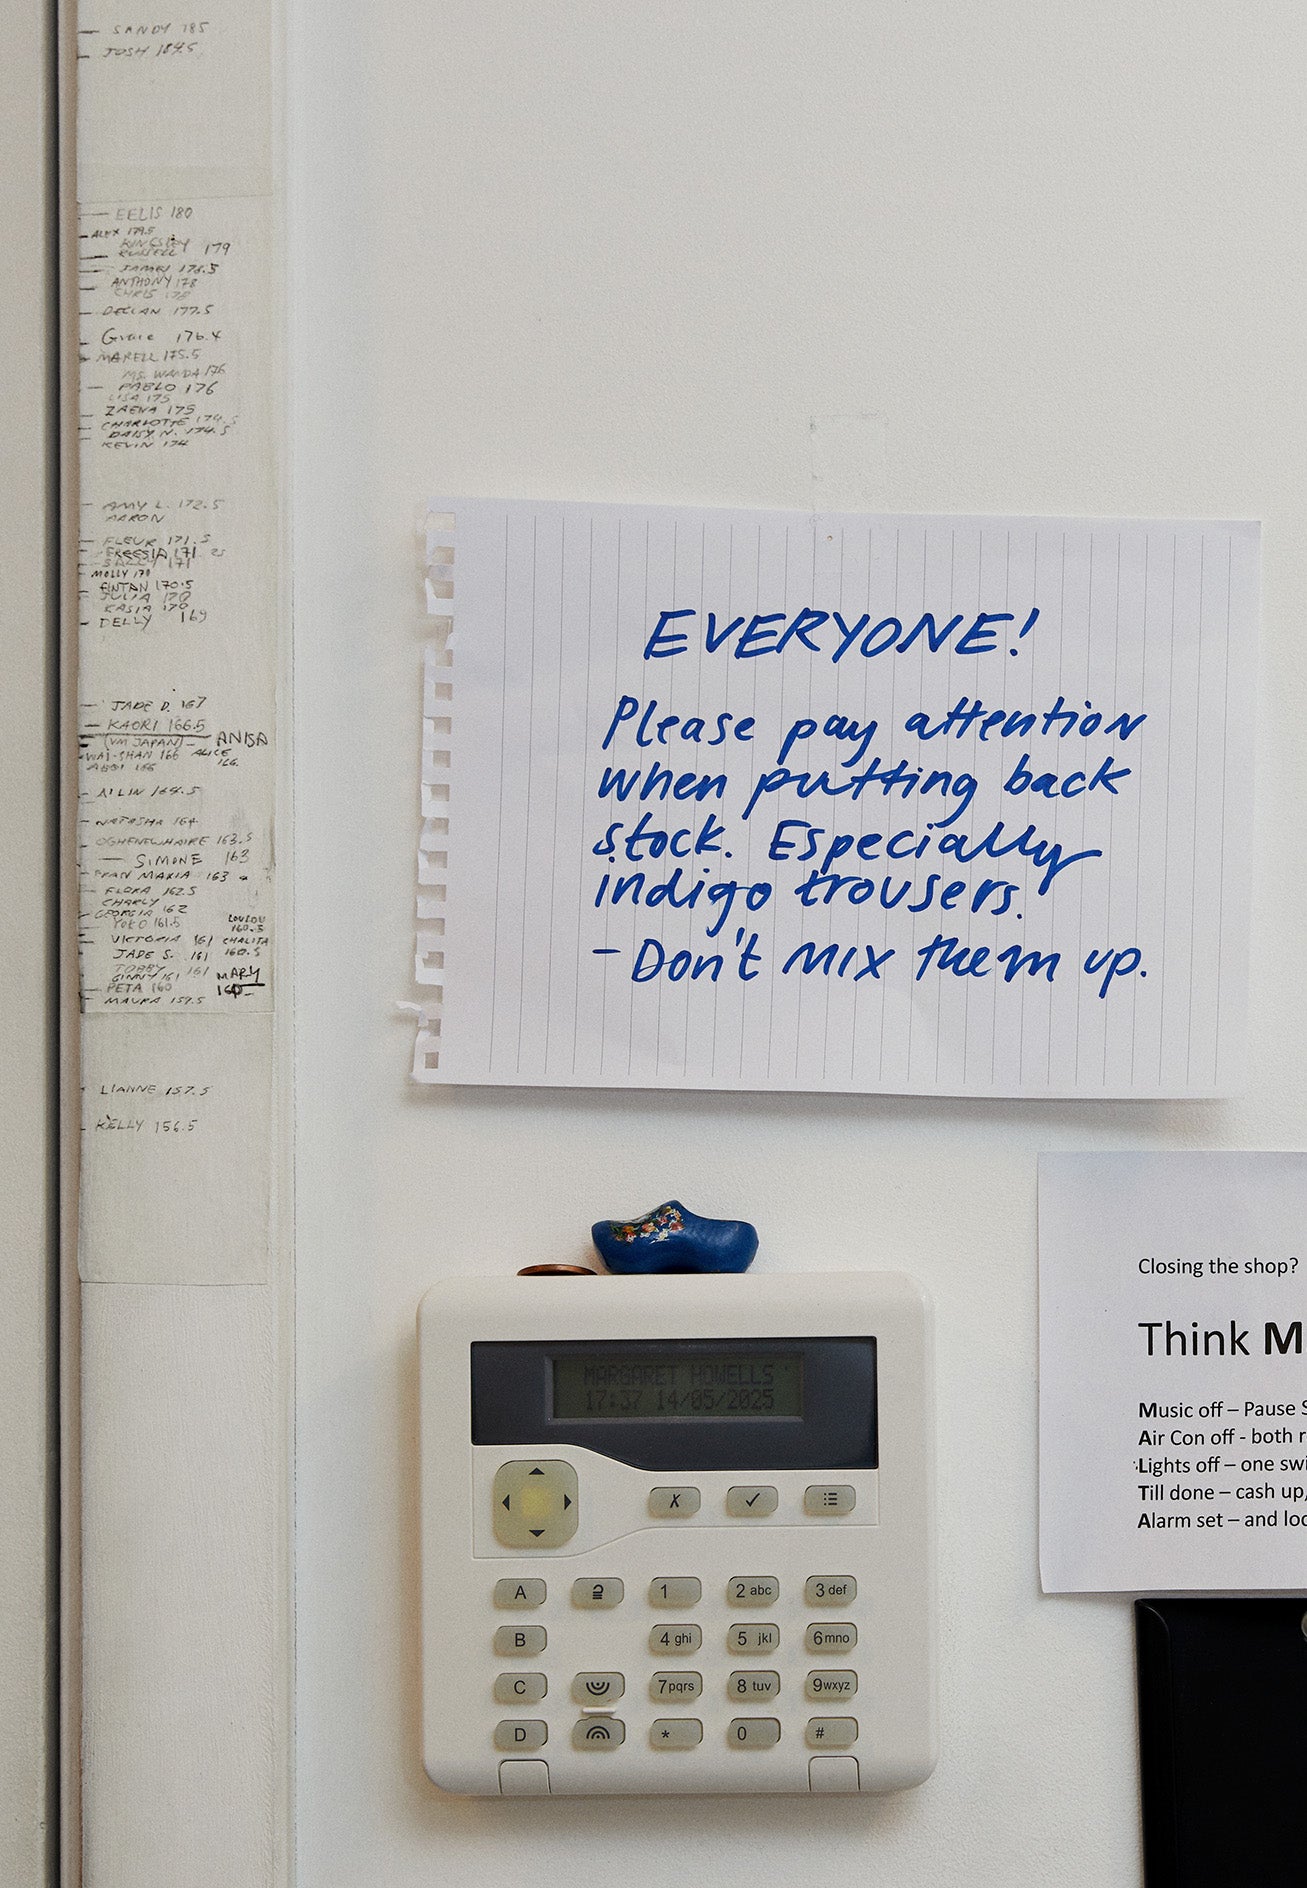 SANDY 185
JOSH 184.5
EELIS 180
ALEX 179.5
KINGSLEY
RUSSELL 179
JAMES 178.5
ANTHONY 178
CHRIS 178
DECLAN 177.5
Grace 176.4
MARELL 175.5
MS. WANDA 176
PABLO 176
LISA 175
ZAENA 175
CHARLOTTE 174.5
DAISY N. 174.5
KEVIN 174
AMY L. 172.5
AARON
FLEUR 171.5
FREESIA 171
SALLY 171
MOLLY 171
FINTAN 170.5
JULIA 170
KASIA 170
DELLY 169
JADE D. 167
KAORI 166.5
(VM JAPAN) ANISA
WAI-SHAN 166 ALICE
ABBI 166 166.
AILIN 164.5
NATASHA 164
OGHENEWHAIRE 163.5
SIMONE 163
FRAN MARIA 163
FLORA 162.5
CHARLY
GEORGIA 162
YOKO 161.5 LOULOU
160.5
VICTORIA 161 CHALITA
JADE S. 161 160.5
TOBBY 161
GINNY 161 MARY
PETA 160 160
MAURA 159.5
LIANNE 157.5
KELLY 156.5
EVERYONE!
Please pay attention
when putting back
stock. Especially
indigo trousers.
- Don't MIX them up.
Closing the shop?
Think M
Music off – Pause S
Air Con off - both r
Lights off – one swi
Till done – cash up,
Alarm set – and loc
MARGARET HOWELLS
17:37 14/05/2025
A 1 2 abc 3 def
B 4 ghi 5 jkl 6 mno
C 7 pqrs 8 tuv 9 wxyz
D * 0 #